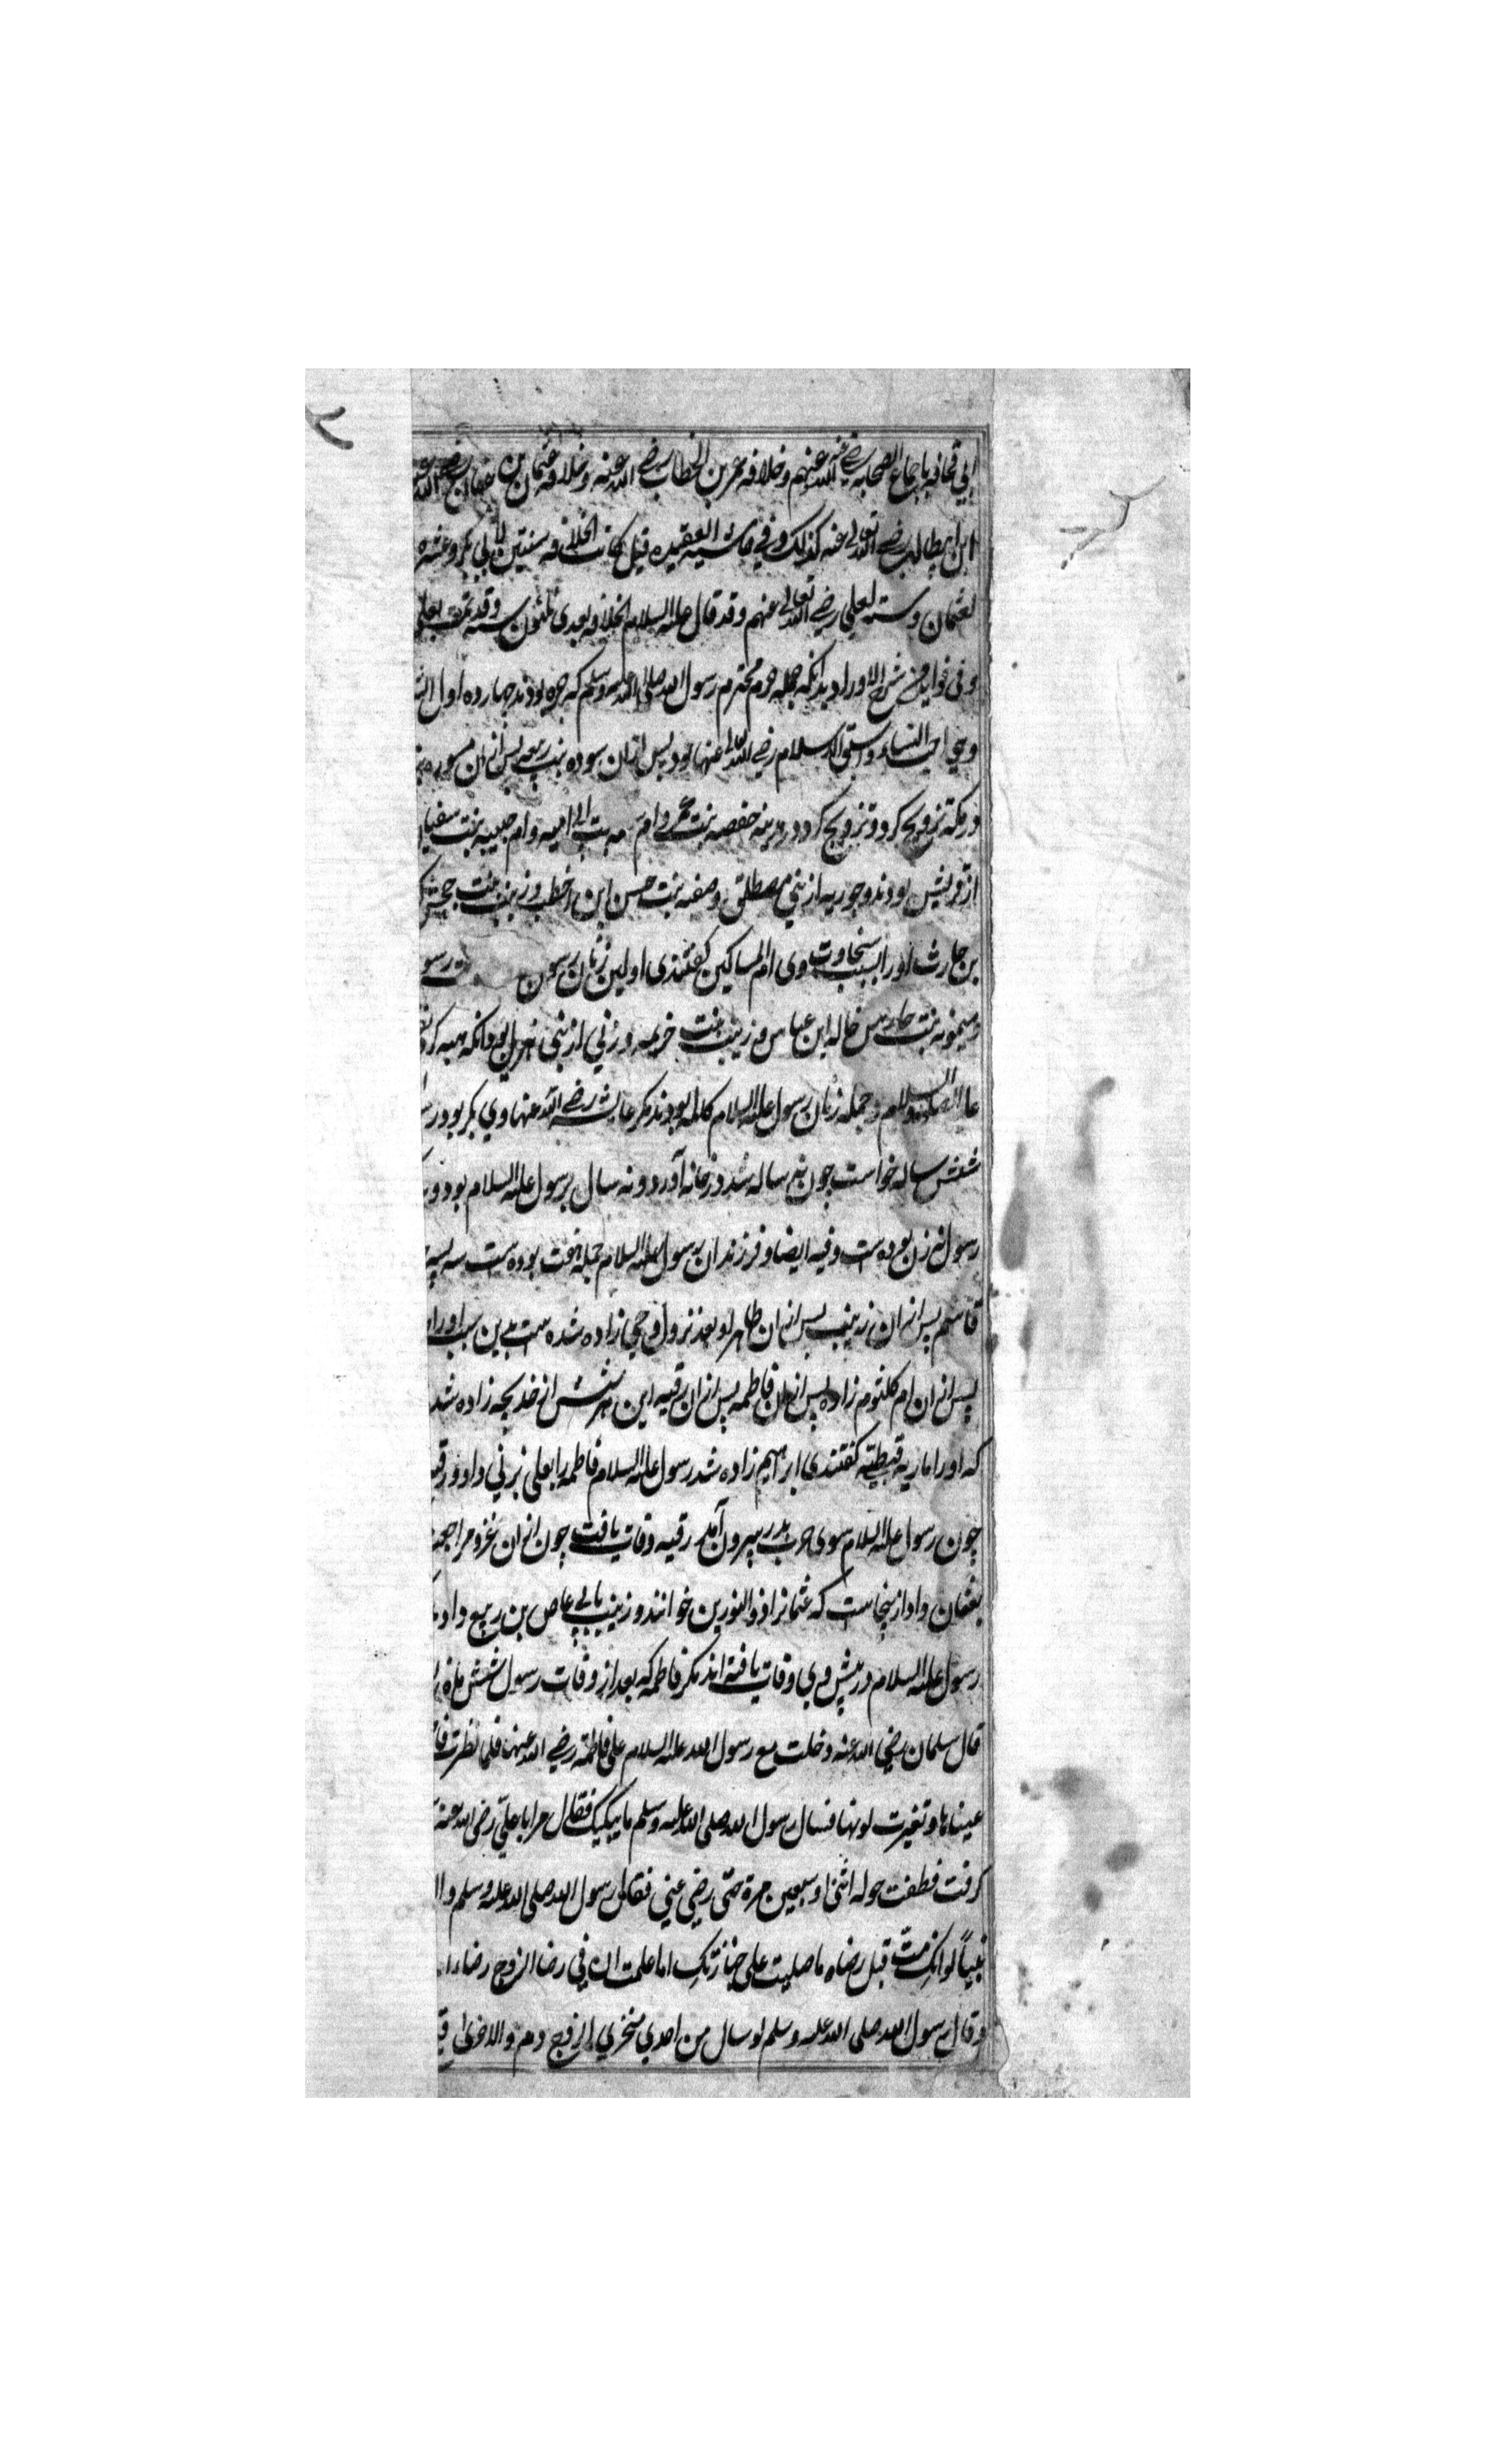 ابی قحافه باجماع الصحابه رضی الله عنهم و خلافه عمر بن الخطاب رضی الله عنه و خلافه عثمان بن عفان رضی الله
ابن ابیطالب رضی الله تعالی عنه کذلک و فی حاشیه العقیده قیل کانت الخلافه سنتین لابی بکر و عشره
لعثمان و سته لعلی رضی الله تعالی عنهم و قد قال علیه السلام الخلافه بعدی ثلثون سنه و قد تمت بعلی
و فی فواید من شرح الاوراد بدانکه جمله حرم محترم رسول الله صلی الله علیه وسلم که حره بودند چهارده اول
وهی احب النساء و اسبق الاسلام رضی الله تعالی عنها بود پس ازان سوده بنت ربیعه پس ازان
در مکه تزویج کرد و تزویج کرد در مدینه حفصه بنت عمر و ام بنت ابی امیه و ام حبیبه بنت سفیان
از قریش بودند و جویریه از بنی مصطلق و صفیه بنت حسن ابن اخطب و زینب بنت جحش
بن حارث او را بسبب سخاوت وی ام المساکین گفتندی اولین زنان رسول رسو
و میمونه بنت حارث خاله ابن عباس و زینب بنت خزیمه و زنی از بنی بود انکه هبه کرد
علیه الصلوة والسلام و جمله زنان رسول علیه السلام کالمه بودند مگر عایشه رضی الله عنها وی بکر بود
شش ساله خواست چون نه ساله شد در خانه آورد و نه سال بر رسول علیه السلام بود و
رسول نه زن بوده است و فیه ایضا و فرزندان رسول علیه السلام جمله هفت بوده است سه پسر
قاسم پس ازان زینب پس ازان طاهر او بعد نزول وحی زاده شده است بدین سبب او را
پس ازان ام کلثوم زاده پس ازان فاطمه پس ازان رقیه این هر شش از خدیجه زاده شد
که او را ماریه قبطیته گفتندی ابراهیم زاده شد رسول علیه السلام فاطمه را بعلی بزنی داد و رقیه
چون رسول علیه السلام سوی حرب بدر بیرون آمد رقیه وفات یافت چون ازان غزو مراجعت
بعثمان داد از ینجاست که عثمانرا ذوالنورین خوانند و زینب بابی عاص بن ربیع داد
رسول علیه السلام در پیش وی وفات یافته اند مگر فاطمه که بعد از وفات رسول شش ماه
قال سلمان رضی الله عنه دخلت مع رسول الله علیه السلام علی فاطمة رضی الله عنها فلما نظرت
عیناها و تغیرت لونها فسال رسول الله صلی الله علیه وسلم ما یبکیک فقال علی رضی الله عنه
کرفت فطفت حوله اثنی و سبعین مرة حتی رضی عنی فقال رسول الله صلی الله علیه وسلم وا
نبیاً لو انکِ متّ قبل رضاه ما صلیت علی جنازتکِ اما علمت ان فی رضا الزوج رضاء
وقال رسول الله صلی الله علیه وسلم لو سال من احدی منخری الزوج دم والاخری